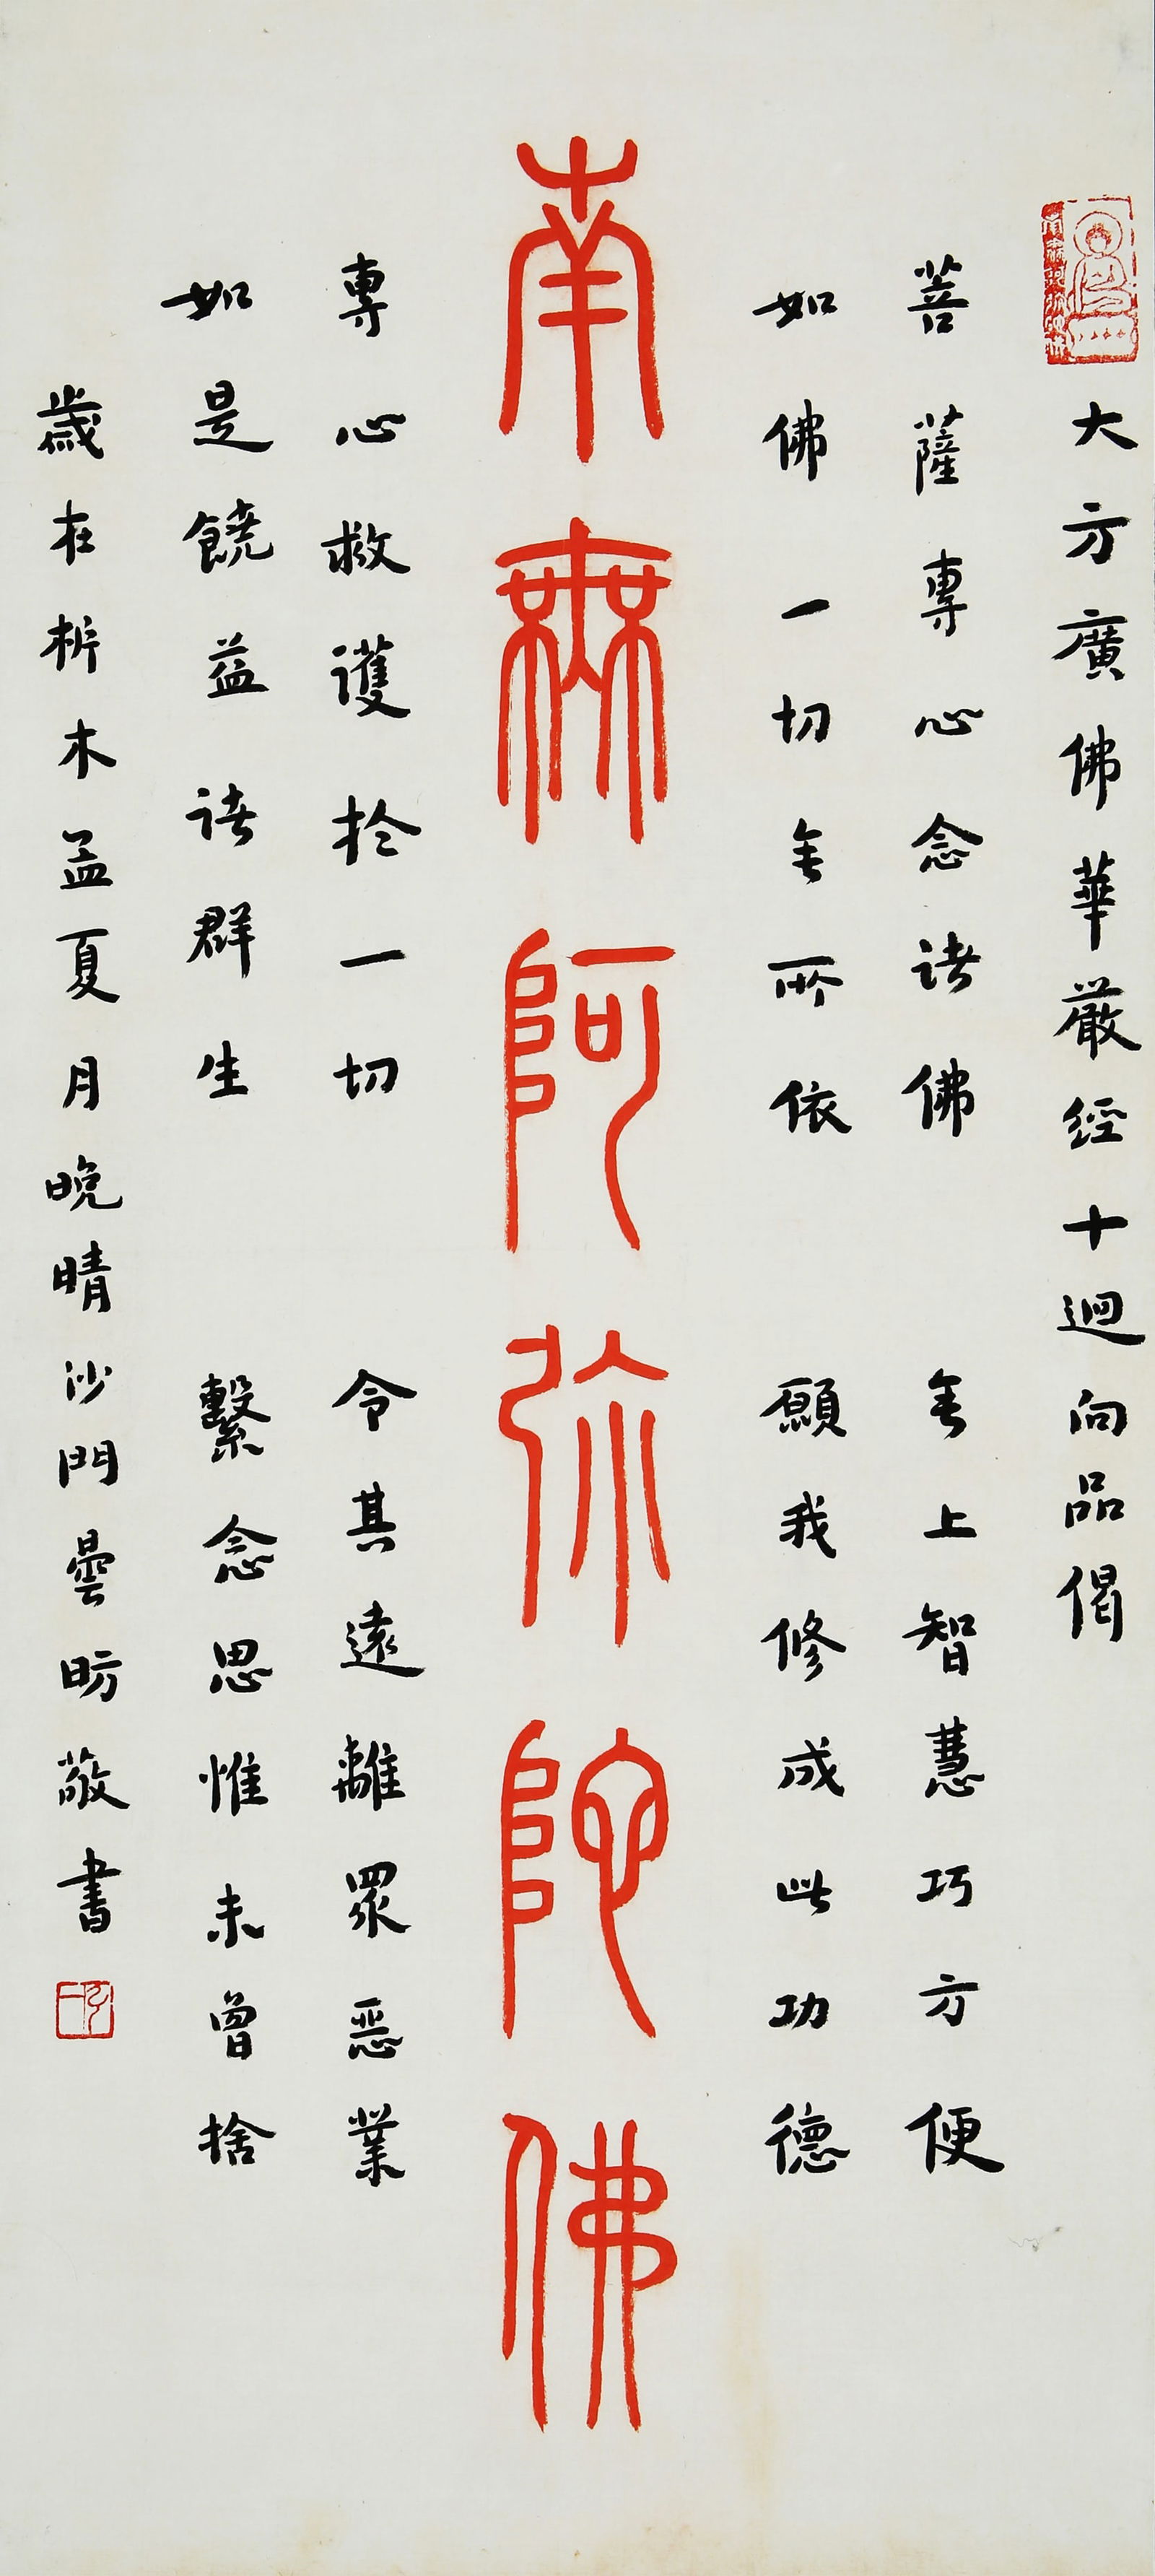 大方廣佛華嚴經十迴向品偈
菩薩專心念諸佛 无上智慧巧方便
如佛一切无所依 願我修成此功德
南無阿彌陀佛
專心救護於一切 令其遠離眾惡業
如是饒益諸群生 繫念思惟未曾捨
歲在析木孟夏月晚晴沙門曇昉敬書